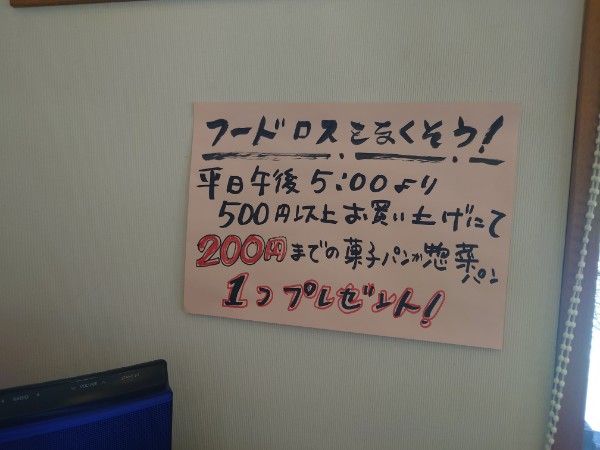 フードロスをなくそう!
平日午後5:00より
500円以上お買い上げにて
200円までの菓子パンか惣菜パン
1つプレゼント!